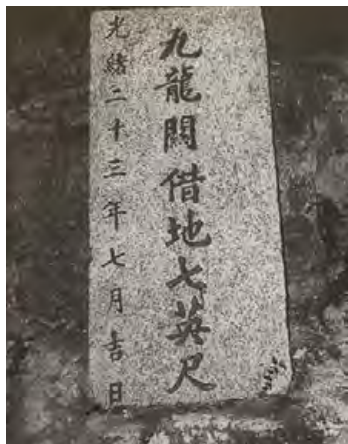 九龍關借地七英尺
光緒二十三年七月吉日